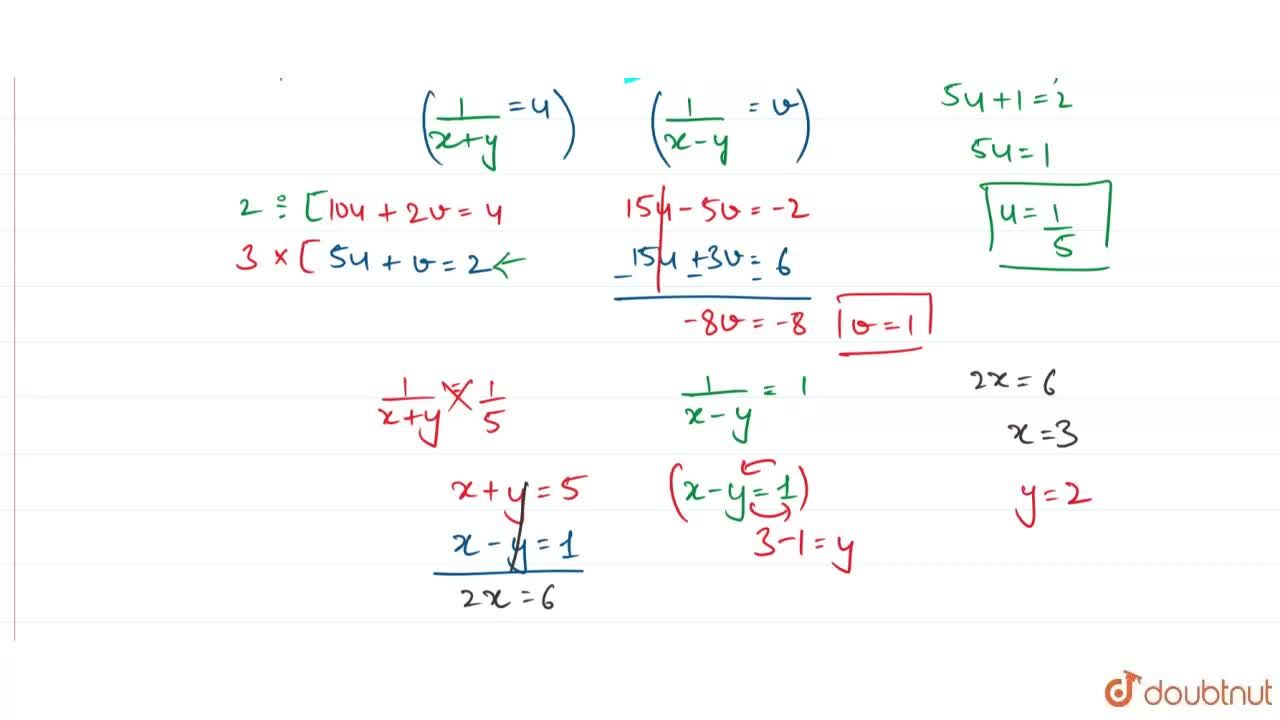 (1/(x+y) = u) (1/(x-y) = v) 5u+1=2
5u=1
2 ÷ [10u + 2v = 4 15u - 5v = -2 u = 1/5
3 × [5u + v = 2 ← 15u + 3v = 6
- - -
-8v = -8 v = 1
1/(x+y) = 1/5 1/(x-y) = 1 2x = 6
x = 3
x+y = 5 (x-y = 1) y = 2
x-y = 1 3-1 = y
2x = 6
doubtnut